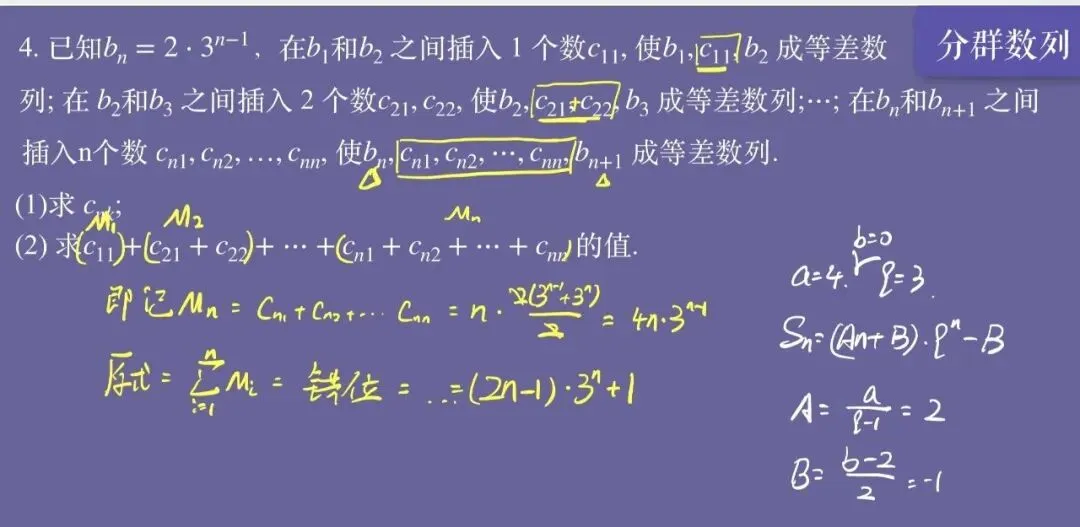 分群数列
4. 已知bₙ = 2 · 3ⁿ⁻¹, 在b₁和b₂ 之间插入 1 个数c₁₁, 使b₁, c₁₁, b₂ 成等差数
列; 在 b₂和b₃ 之间插入 2 个数c₂₁, c₂₂, 使b₂, c₂₁+c₂₂, b₃ 成等差数列;⋯; 在bₙ和bₙ₊₁ 之间
插入n个数 cₙ₁, cₙ₂, …, cₙₙ, 使bₙ, cₙ₁, cₙ₂, ⋯, cₙₙ, bₙ₊₁ 成等差数列.
(1)求 cₙₖ;
M₁ M₂ Mₙ
(2) 求(c₁₁)+(c₂₁ + c₂₂)+ ⋯ +(cₙ₁ + cₙ₂ + ⋯ + cₙₙ)的值.
即记 Mₙ = Cₙ₁+Cₙ₂+⋯ Cₙₙ = n · 2(3ⁿ⁻¹+3ⁿ)/2 = 4n·3ⁿ⁻¹
原式 = ∑ⁿᵢ₌₁ Mᵢ = 错位 = ⋯ = (2n−1)·3ⁿ+1
b=0
a=4. q=3.
Sₙ=(An+B)·qⁿ−B
A= a/(q−1) = 2
B= (b−2)/2 = −1